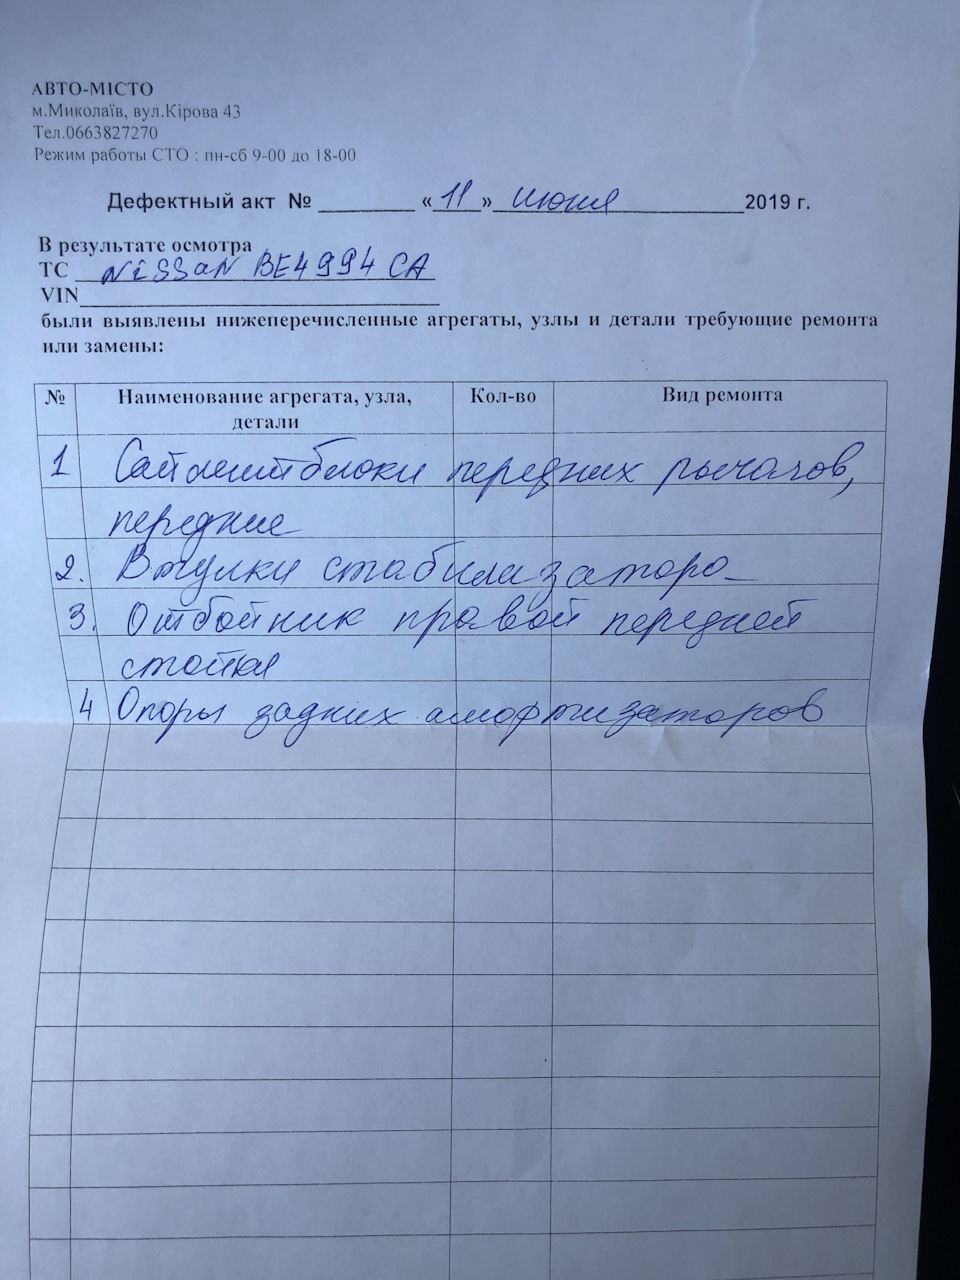 АВТО-МІСТО
м.Миколаїв, вул.Кірова 43
Тел.0663827270
Режим работы СТО : пн-сб 9-00 до 18-00
Дефектный акт № ________ «11» июня 2019 г.
В результате осмотра
ТС NiSSaN BE4994CA
VIN
были выявлены нижеперечисленные агрегаты, узлы и детали требующие ремонта
или замены:
№ Наименование агрегата, узла, Кол-во Вид ремонта
детали
1 Сайлентблоки передних рычагов,
передние
2. Втулки стабилизатора
3. Отбойник правой передней
стойки
4 Опоры задних амортизаторов